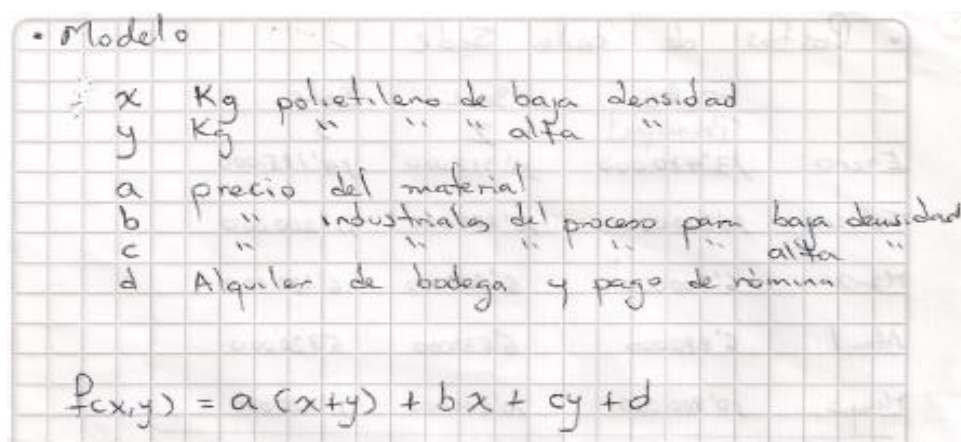 • Modelo
x Kg polietileno de baja densidad
y Kg " " " alta "
a precio del material
b " industriales del proceso para baja densidad
c " " " " " alta "
d Alquiler de bodega y pago de nómina
f(x,y) = a (x+y) + bx + cy + d